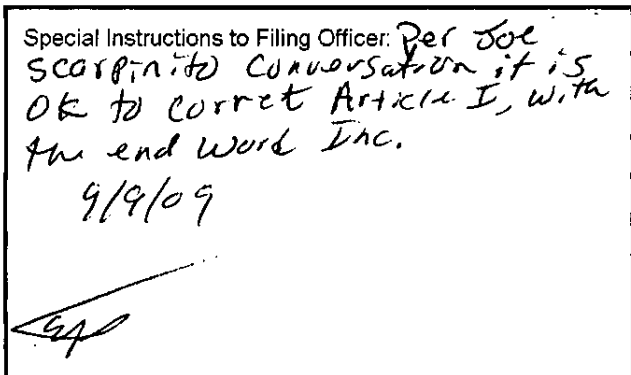 Special Instructions to Filing Officer: Per Joe
scarpinito Conversation it is
OK to corret Article I, with
the end word Inc.
9/9/09